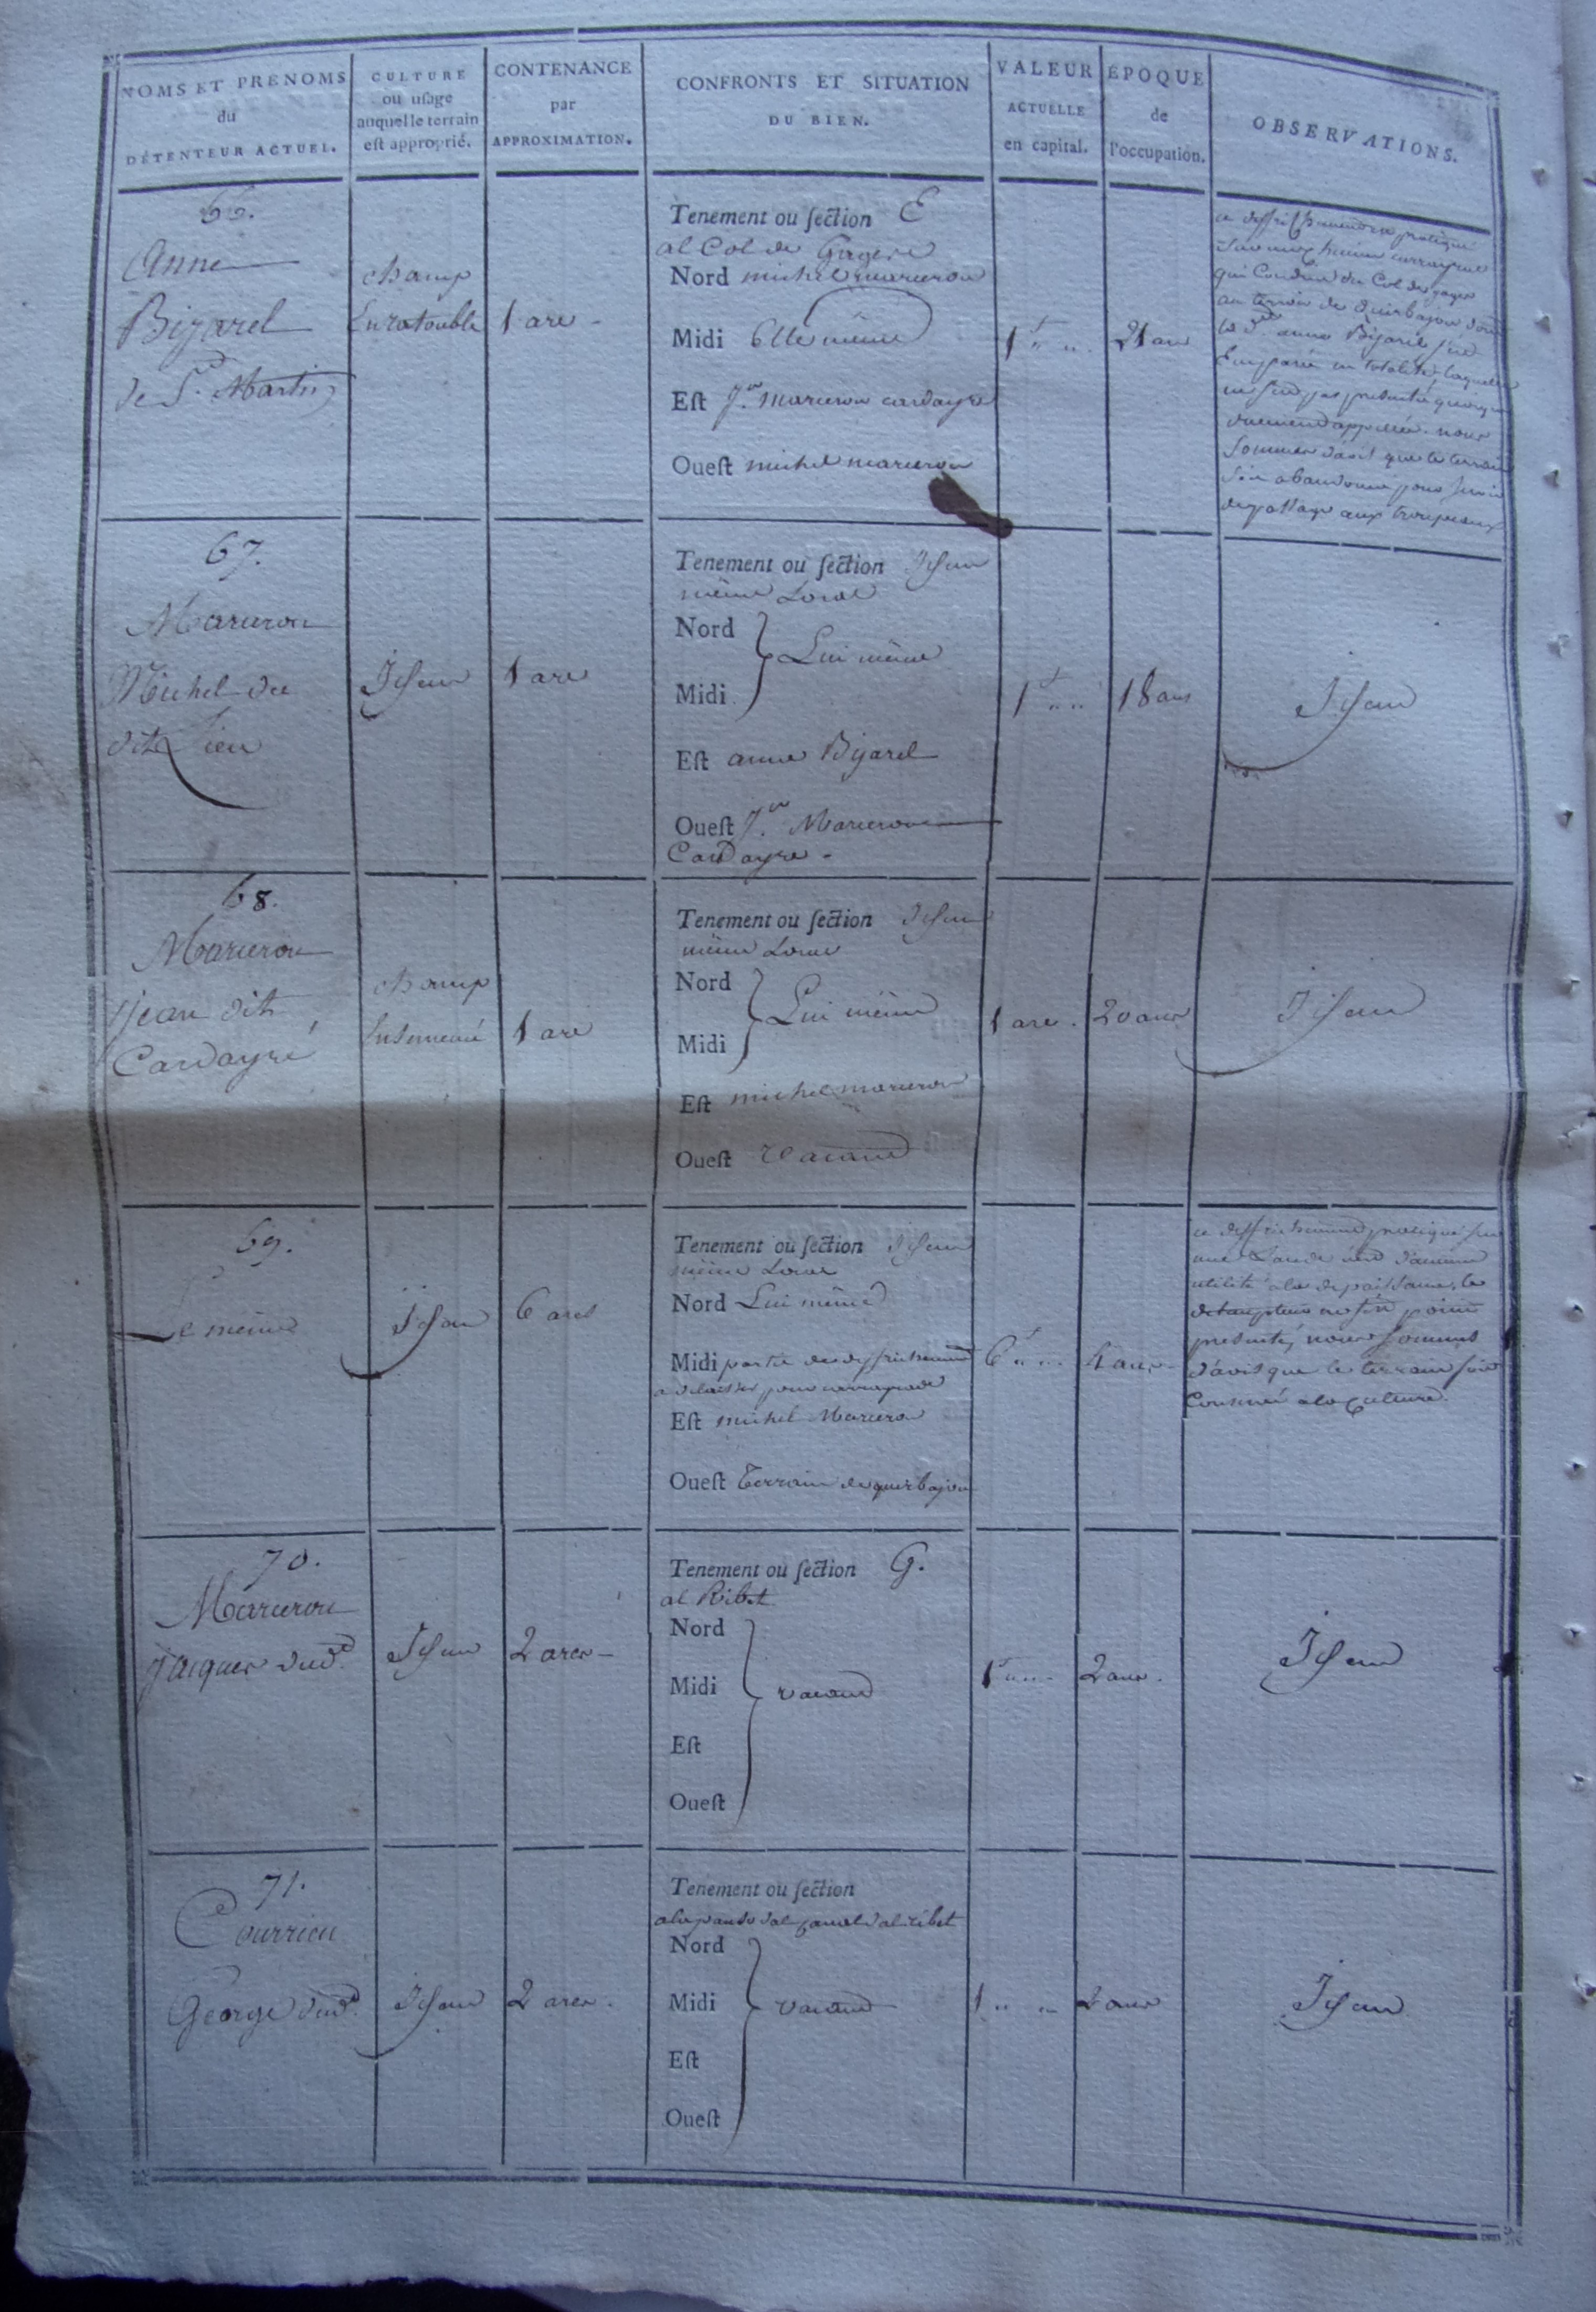 NOMS ET PRÉNOMS
du
DÉTENTEUR ACTUEL.
CULTURE
ou uſage
auquel le terrain
eſt approprié.
CONTENANCE
par
APPROXIMATION.
CONFRONTS ET SITUATION
DU BIEN.
VALEUR
ACTUELLE
en capital.
ÉPOQUE
de
l'occupation.
OBSERVATIONS.
66.
Anne
Bizarel
de St. Martin
champ
En ratouble
1 are
Tenement ou ſection E
al Col de
Nord michel marceron
Midi Elle même
Eſt Jn. marceron cardayre
Oueſt michel marceron
1 f
21 ans
ce deffrichement pratiqué
sur un chemin
qui Conduit du Col de
au terroir de quirbajou dont
la de. anne Bizarel s'est
Emparée en totalité laquelle
ne s'est pas presentée quoique
duement appellée. nous
sommes d'avis que le terrain
soit abandonné pour servir
de passage aux troupeaux
67.
Marceron
Michel du
dit Lieu
Idem
1 are
Tenement ou ſection Idem
même Local
Nord
Midi
Lui même
Eſt anne Bizarel
Oueſt Jn. Marceron
Cardayre
1 f
18 ans
Idem
68.
Marceron
jean dit
Cardayré
champ
Ensemencé
1 are
Tenement ou ſection Idem
même Local
Nord
Midi
Lui même
Eſt michel marceron
Oueſt vacant
1 are
20 ans
Idem
69.
Le même
Idem
6 ares
Tenement ou ſection Idem
même Local
Nord Lui même
Midi partie du deffrichement
a delaisser pour
Eſt michel Marceron
Oueſt Terroir de quirbajou
6 f
4 ans
ce deffrichement pratiqué sur
une Lande n'est d'aucune
utilité a la depaissance, le
detempteur ne s'est point
presenté, nous sommes
d'avis que le terrain soit
Conservé a la Culture.
70.
Marceron
jacques dud.
Idem
2 ares
Tenement ou ſection G.
al Ribet
Nord
Midi
Eſt
Oueſt
vacant
1 f
2 ans.
Idem
71.
Courrieu
George dud.
Idem
2 ares.
Tenement ou ſection
Nord
Midi
Eſt
Oueſt
vacant
1
2 ans
Idem